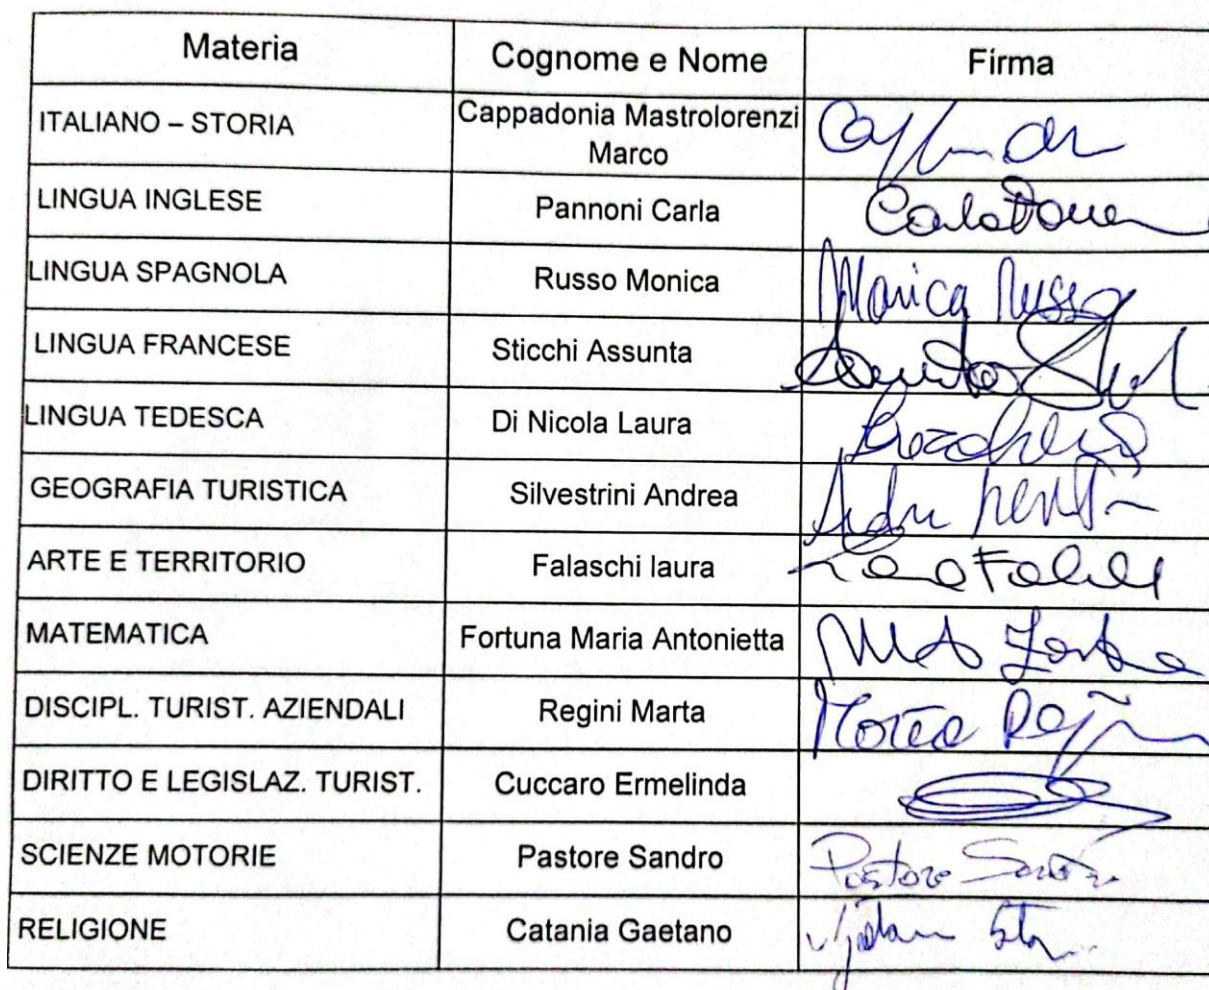 Materia Cognome e Nome Firma
ITALIANO – STORIA Cappadonia Mastrolorenzi
Marco
LINGUA INGLESE Pannoni Carla
LINGUA SPAGNOLA Russo Monica Monica Russo
LINGUA FRANCESE Sticchi Assunta
LINGUA TEDESCA Di Nicola Laura
GEOGRAFIA TURISTICA Silvestrini Andrea
ARTE E TERRITORIO Falaschi laura
MATEMATICA Fortuna Maria Antonietta
DISCIPL. TURIST. AZIENDALI Regini Marta
DIRITTO E LEGISLAZ. TURIST. Cuccaro Ermelinda
SCIENZE MOTORIE Pastore Sandro Pastore
RELIGIONE Catania Gaetano